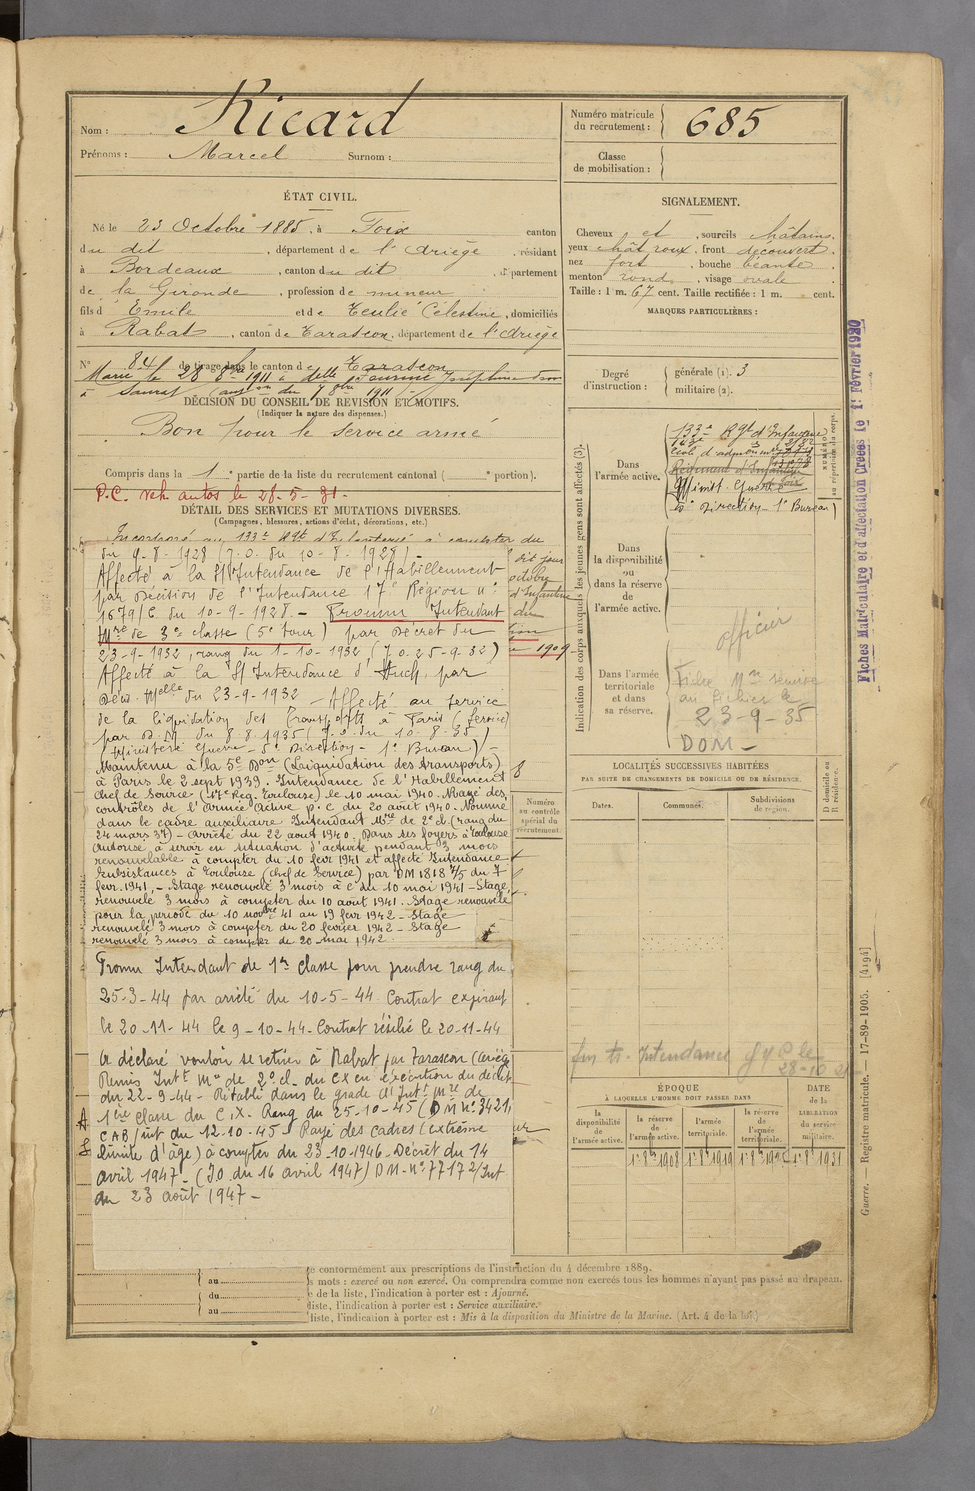 Nom : Ricard
Prénoms : Marcel Surnom :
Numéro matricule du recrutement : 685
Classe de mobilisation :
ÉTAT CIVIL.
Né le 23 Octobre 1885, à Foix canton
du dit, département de l'Ariège, résidant
à Bordeaux, canton du dit, département
de la Gironde, profession de mineur
fils d'Emile et de Teulié Célestine, domiciliés
à Rabat, canton de Tarascon, département de l'Ariège
SIGNALEMENT.
Cheveux et, sourcils châtains.
yeux chât roux. front découvert.
nez fort, bouche béante.
menton rond, visage ovale.
Taille : 1 m. 67 cent. Taille rectifiée : 1 m. cent.
MARQUES PARTICULIÈRES :
N° 84 de tirage dans le canton de Tarascon
Marié le 28 8bre 1911 à delle Joséphine
à Saurat
DÉCISION DU CONSEIL DE REVISION ET MOTIFS.
(Indiquer la nature des dispenses.)
Bon pour le service armé
Compris dans la 1e partie de la liste du recrutement cantonal ( e portion).
P.C. autos le 28-5-31.
Degré d'instruction : générale (1). 3
militaire (2).
DÉTAIL DES SERVICES ET MUTATIONS DIVERSES.
(Campagnes, blessures, actions d'éclat, décorations, etc.)
au 133e Rgt d'Infanterie à compter du
du 9-8-1928 (J.O. du 10-8-1928) -
Affecté à la S/Intendance de l'Habillement
par Décision de l'Intendance 17e Région n°
1679/C du 10-9-1928. - Promu Intendant
Mre de 3e classe (5e tour) par Décret du
23-9-1932, rang du 1-10-1932 (J.O. 25-9-32)
Affecté à la S/Intendance d'Auch, par
Déci. Mlle du 23-9-1932 - Affecté au service
de la liquidation des Transports à Paris (Service)
par D.M. du 8.8.1935 (J.O. du 10-8-35)
(Ministère Guerre - 5e Direction - 1er Bureau) -
Maintenu à la 5e Don (Liquidation des transports)
à Paris le 2 sept 1939. Intendance de l'Habillement
Chef de Service (17e Rég. Toulouse) le 10 mai 1940. Rayé des
contrôles de l'Armée Active p.c du 20 août 1940. Nommé
dans le cadre auxiliaire Intendant Mre de 2e cl. (rang du
24 mars 37) - Arrêté du 22 août 1940. Dans ses foyers à Toulouse
Autorisé à servir en situation d'activité pendant 3 mois
renouvelable à compter du 10 fevr 1941 et affecté Intendance
Subsistances à Toulouse (chef de Service) par DM 1818 7/5 du 7
fevr. 1941, - Stage renouvelé 3 mois à c du 10 mai 1941 - Stage
renouvelé 3 mois à compter du 10 août 1941. Stage renouvelé
pour la période du 10 novbre 41 au 19 fevr 1942 - Stage
renouvelé 3 mois à compter du 20 fevrier 1942 - Stage
renouvelé 3 mois à compter du 20 mai 1942.
Promu Intendant de 1re classe pour prendre rang du
25-3-44 par arrêté du 10-5-44. Contrat expirant
le 20-11-44 le 9-10-44. Contrat résilié le 20-11-44
A déclaré vouloir se retirer à Rabat par Tarascon (Ariège)
Remis Intt Mre de 2e cl. du CX en exécution du décret
du 22-9-44 - Rétabli dans le grade d'Intt Mre de
1ère Classe du C.X. Rang du 25-10-45 (DM N° 3421
CAB/int du 12-10-45) Rayé des cadres (extrême
limite d'âge) à compter du 23.10.1946. Décret du 14
avril 1947 - (J.O. du 16 avril 1947) DM. N° 77172/Int
du 23 août 1947 -
dit jour
octobre
d'Infanterie
du
1909
Indication des corps auxquels les jeunes gens sont affectés (3).
Dans l'armée active.
133e Rgt d'Infanterie
Ministre Guerre
5e Direction - 1er Bureau
NUMÉROS
au répertoire du corps.
Dans la disponibilité ou dans la réserve de l'armée active.
Dans l'armée territoriale et dans sa réserve.
officier
Fiche Mle réserve
au fichier le
23-9-35
DOM -
LOCALITÉS SUCCESSIVES HABITÉES
PAR SUITE DE CHANGEMENTS DE DOMICILE OU DE RÉSIDENCE.
Numéro au contrôle spécial du recrutement.
Dates.
Communes.
Subdivisions de région.
D domicile ou R résidence.
Intendance
28-10
ÉPOQUE
À LAQUELLE L'HOMME DOIT PASSER DANS
la disponibilité de l'armée active.
la réserve de l'armée active.
l'armée territoriale.
la réserve de l'armée territoriale.
DATE de la LIBÉRATION du service militaire.
1er 8bre 1908
1er 8bre 1919
1er 8bre 1925
1er 8bre 1931
au
du
au
e conformément aux prescriptions de l'instruction du 4 décembre 1889.
s mots : exercé ou non exercé. On comprendra comme non exercés tous les hommes n'ayant pas passé au drapeau.
e de la liste, l'indication à porter est : Ajourné.
liste, l'indication à porter est : Service auxiliaire.
liste, l'indication à porter est : Mis à la disposition du Ministre de la Marine. (Art. 4 de la loi)
Fiches Matriculaire et d'affectation Créées le 1er Février 1920
Guerre. — Registre matricule. — 17-89-1905. [4194]